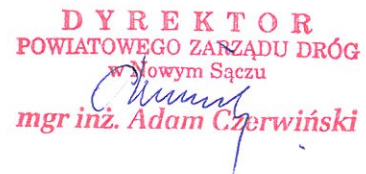 DYREKTOR
POWIATOWEGO ZARZĄDU DRÓG
w Nowym Sączu
mgr inż. Adam Czerwiński